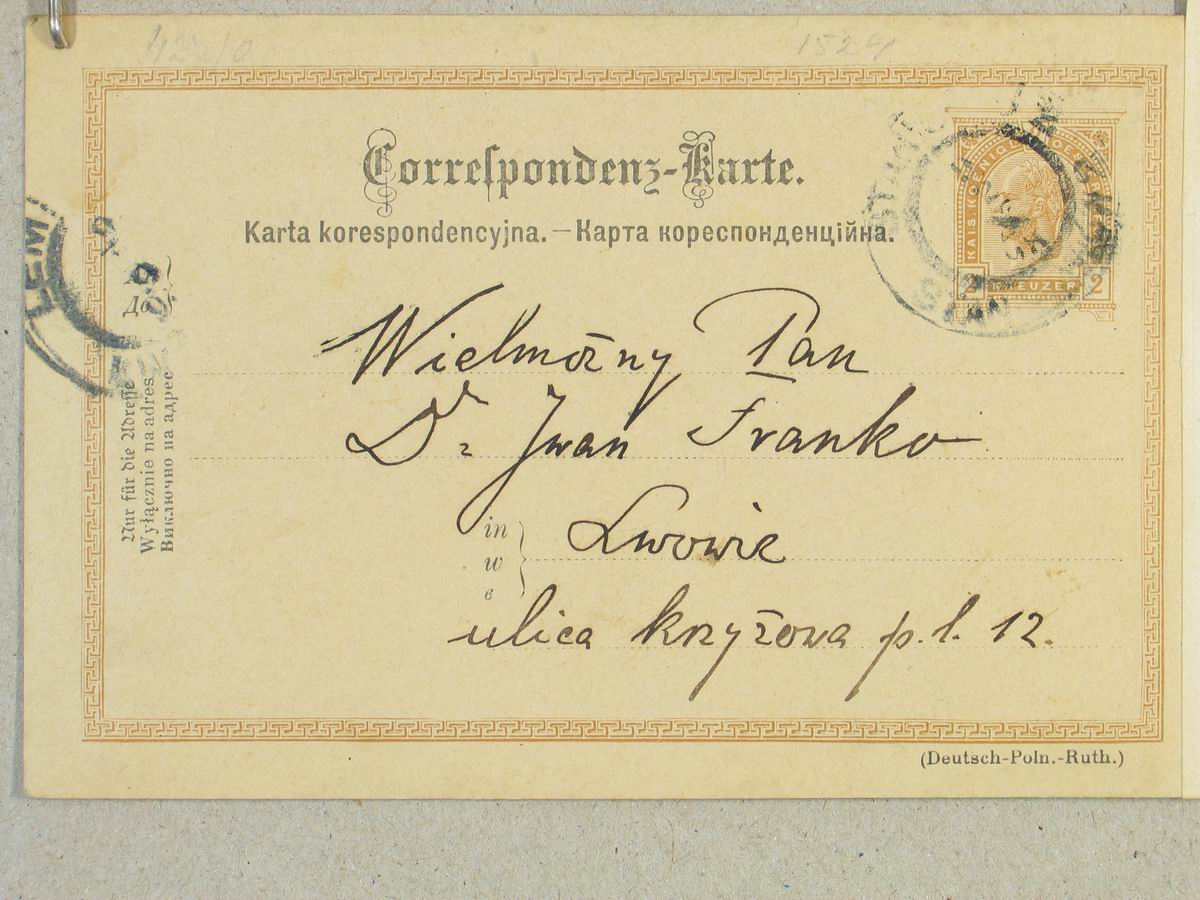 1524
Correspondenz-Karte.
Karta korespondencyjna. — Карта кореспонденційна.
KAIS. KOENIGL.
2 KREUZER 2
LEM
До
Nur für die Adresse
Wyłącznie na adres
Виключно на адрес
Wielmożny Pan
Dr Iwan Franko
in
w
в
Lwowie
ulica krzyżowa p. l. 12.
(Deutsch-Poln.-Ruth.)